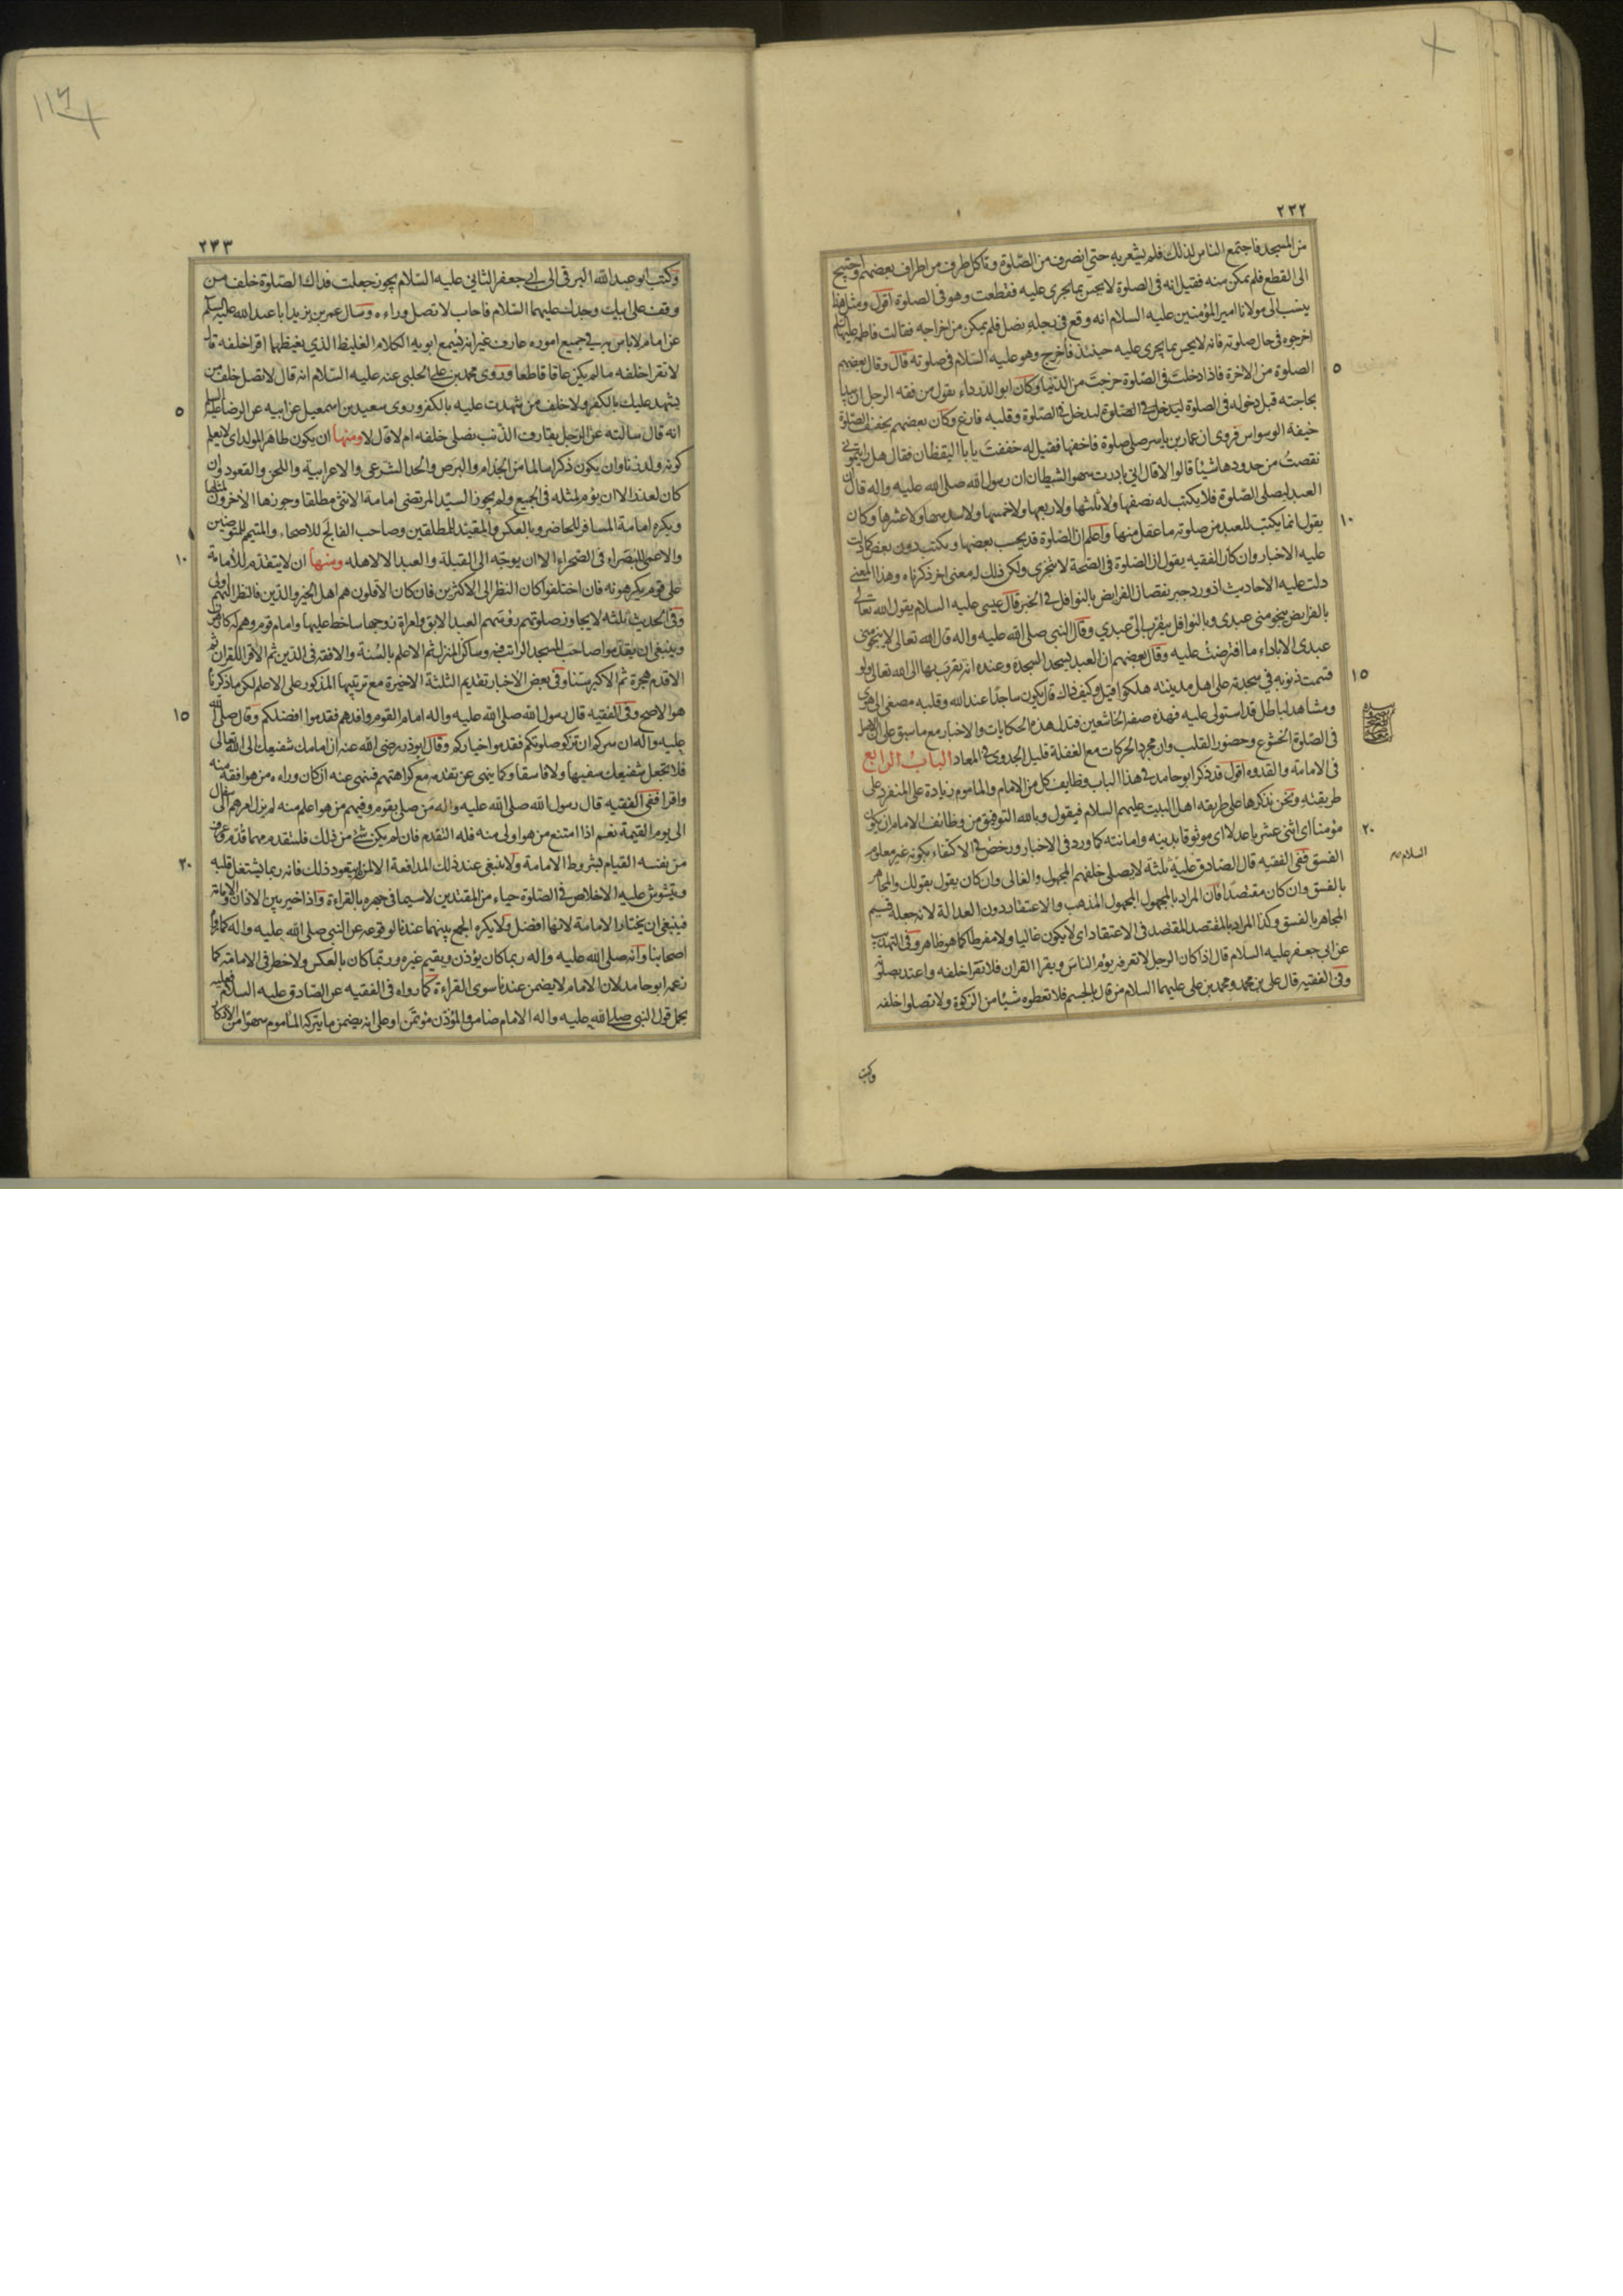 ٢٣٢
من المسجد فاجتمع الناس لذلك فلم يشعر به حتى انصرف من الصلوة وتاكل طرف من اطراف بعضهم واحتيج
الى القطع فلم يمكن منه فقيل انه فى الصلوة لا يحس بما يجرى عليه فقطعت وهو فى الصلوة اقول ومثل هذا
ينسب الى مولانا امير المؤمنين عليه السلام انه وقع فى رجله نصل فلم يمكن من اخراجه فقالت فاطمة عليها السلام
اخرجوه فى حال صلوته فانه لا يحس بما يجرى عليه حينئذ فاخرج وهو عليه السلام فى صلوته قال وقال بعضهم
٥
الصلوة من الاخرة فاذا دخلت فى الصلوة خرجت من الدنيا وكان ابو الدرداء يقول من فقه الرجل ان يبدا
بحاجته قبل دخوله فى الصلوة ليدخل فى الصلوة وقلبه فارغ وكان بعضهم يخفف الصلوة
خيفة الوسواس فروى ان عمار بن ياسر صلى صلوة فاخفها فقيل له خففت يا با اليقظان فقال هل رايتمونى
نقصت من حدودها شيئا قالوا لا قال انى بادرت سهو الشيطان ان رسول الله صلى الله عليه واله قال ان
العبد ليصلى الصلوة فلا يكتب له نصفها ولا ثلثها ولا ربعها ولا خمسها ولا سدسها ولا عشرها وكان
١٠
يقول انما يكتب للعبد من صلوته ما عقل منها واعلم ان الصلوة قد يحسب بعضها ويكتب دون بعض كما دلت
عليه الاخبار وان كان الفقيه يقول ان الصلوة فى الصحة لا تتجزى ولكن ذلك له معنى اخر ذكرناه وهذا المعنى
دلت عليه الاحاديث اذ ورد جبر نقصان الفرايض بالنوافل فى الخبر قال عيسى عليه السلام يقول الله تعالى
بالفرايض ينجو منى عبدى وبالنوافل يتقرب الى عبدي وقال النبى صلى الله عليه واله قال الله تعالى لا ينجو منى
عبدى الا باداء ما افترضت عليه وقال بعضهم ان العبد يسجد السجدة وعنده انه تقرب بها الى الله تعالى ولو
١٥
قسمت ذنوبه فى سجدته على اهل مدينته هلكوا قيل وكيف ذاك قال يكون ساجدا عند الله وقلبه مصغى الى هوى
ومشاهد لباطل قد استولى عليه فهذه صفة الخاشعين فتدل هذه الحكايات والاخبار مع ما سبق على ان الاصل
فى الصلوة الخشوع وحضور القلب وان مجرد الحركات مع الغفلة قليل الجدوى فى المعاد الباب الرابع
فى الامامة والقدوة اقول قد ذكر ابو حامد فى هذا الباب وظايف كل من الامام والماموم زيادة على المنفرد على
طريقته ونحن نذكرها على طريقة اهل البيت عليهم السلام فيقول وبالله التوفيق من وظائف الامام ان يكون
٢٠
مؤمنا اى اثنى عشريا عدلا اى موثوقا بدينه وامانته كما ورد فى الاخبار ورخص فى الاكتفاء بكونه غير معلوم
الفسق ففى الفقيه قال الصادق عليه ثلثة لا يصلى خلفهم المجهول والغالى وان كان يقول بقولك والمجاهر
السلام
بالفسق وان كان مقتصدا فان المراد بالمجهول المجهول المذهب والاعتقاد دون العدالة لانه جعله قسيم
المجاهر بالفسق وكذا المراد بالمقتصد المقتصد فى الاعتقاد اى لا يكون غاليا ولا مفرطا كما هو ظاهر وفى التهذيب
عن ابي جعفر عليه السلام قال اذا كان الرجل لا تعرفه يؤم الناس ويقرا القران فلا تقرا خلفه واعتد بصلوته
وفى الفقيه قال على بن محمد ومحمد بن على عليهما السلام من قال بالجسم فلا تعطوه شيئا من الزكوة ولا تصلوا خلفه
وكتب
٢٣٣
وكتب ابو عبد الله البرقى الى ابى جعفر الثانى عليه السلام يجوز جعلت فداك الصلوة خلف من
وقف على ابيك وجدك عليهما السلام فاجاب لا تصل وراءه وسال عمر بن يزيد ابا عبد الله عليه السلم
عن امام لا باس به فى جميع اموره عارف غير انه يسمع ابويه الكلام الغليظ الذي يغيظهما اقرا خلفه قال
لا تقرا خلفه ما لم يكن عاقا قاطعا وروى محمد بن على الحلبى عنه عليه السلام انه قال لا تصل خلف من
٥
يشهد عليك بالكفر ولا خلف من شهدت عليه بالكفر وروى سعيد بن اسمعيل عن ابيه عن الرضا عليه السلم
انه قال سالته عن الرجل يقارف الذنب نصلى خلفه ام لا قال لا ومنها ان يكون طاهر المولد اى لا يعلم
كونه ولد زنا وان يكون ذكرا سالما من الجذام والبرص والحد الشرعى والاعرابية واللحن والقعود وان
كان لعذر الا ان يؤم لمثله فى الجميع ولم يجوز السيد المرتضى امامة الانثى مطلقا وجوزها الاخرون لمثلها
ويكره امامة المسافر للحاضر وبالعكس والمقيد للمطلقين وصاحب الفالج للاصحاء والمتيمم للمتوضين
١٠
والاعمى للبصراء فى الصحراء الا ان يوجه الى القبلة والعبد الا لاهله ومنها ان لا يتقدم للامامة
على قوم يكرهونه فان اختلفوا كان النظر الى الاكثرين فان كان الاقلون هم اهل الخير والدين فالنظر اليهم اولى
وفى الحديث ثلثه لا يجاوز صلوتهم رؤسهم العبد الابق وامراة زوجها ساخط عليها وامام قوم وهم له كارهون
وينبغى ان يقدموا صاحب المسجد الراتب فيه وساكن المنزل ثم الاعلم بالسنة والافقه فى الدين ثم الاقرا للقران ثم
الاقدم هجرة ثم الاكبر سنا وفى بعض الاخبار تقديم الثلثة الاخيرة مع ترتيبها المذكور على الاعلم لكن ما ذكرنا
١٥
هو الاصح وفى الفقيه قال رسول الله صلى الله عليه واله امام القوم وافدهم فقدموا افضلكم وقال صلى الله
عليه واله ان سركم ان تزكو صلوتكم فقدموا خياركم وقال ابو ذر رضى الله عنه ان امامك شفيعك الى الله تعالى
فلا تجعل شفيعك سفيها ولا فاسقا وكما ينهى عن تقدمه مع كراهتهم فينهى عنه ان كان وراءه من هو افقه منه
واقرا ففى الفقيه قال رسول الله صلى الله عليه واله من صلى بقوم وفيهم من هو اعلم منه لم يزل امرهم الى سفال
الى يوم القيمة نعم اذا امتنع من هو اولى منه فله التقدم فان لم يكن شئ من ذلك فليتقدم مهما قدم وعرف
٢٠
من نفسه القيام بشروط الامامة ولا ينبغى عند ذلك المدافعة الا لمن لم يتعود ذلك فانه ربما يشتغل قلبه
ويتشوش عليه الاخلاص فى الصلوة حياء من المقتدين لا سيما فى جهره بالقراءة واذا خير بين الاذان والامامة
فينبغى ان يختار الامامة لانها افضل ولا يكره الجمع بينهما عندنا لوقوعه عن النبى صلى الله عليه واله كما رواه
اصحابنا وانه صلى الله عليه واله ربما كان يؤذن ويقيم غيره وربما كان بالعكس ولا خطر فى الامامة كما
زعمه ابو حامد لان الامام لا يضمن عندنا سوى القراءة كما رواه فى الفقيه عن الصادق عليه السلام فعليه
يحمل قول النبى صلى الله عليه واله الامام ضامن والمؤذن مؤتمن او على انه يضمن ما يتركه الماموم سهوا من الاذكار